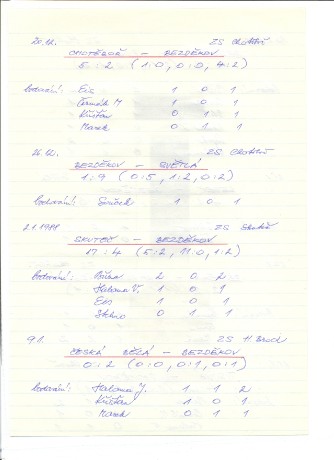 20.12. ZS Chotěboř
CHOTĚBOŘ – BEZDĚKOV
5 : 2 (1:0, 0:0, 4:2)
bodování: 1 0 1
Čermák M 1 0 1
Křišťan 0 1 1
Marek 0 1 1
26.12. ZS Chotěboř
BEZDĚKOV – SVĚTLÁ
1 : 9 (0:5, 1:2, 0:2)
bodování: 1 0 1
2.1.1988 ZS Skuteč
SKUTEČ – BEZDĚKOV
17 : 4 (5:2, 11:0, 1:2)
bodování: 2 0 2
Haloma V. 1 0 1
0 1
0 1
9.1. ZS H. Brod
ČESKÁ BĚLÁ – BEZDĚKOV
0 : 2 (0:0, 0:1, 0:1)
bodování: Haloma J. 1 1 2
Křišťan 1 0 1
Marek 0 1 1